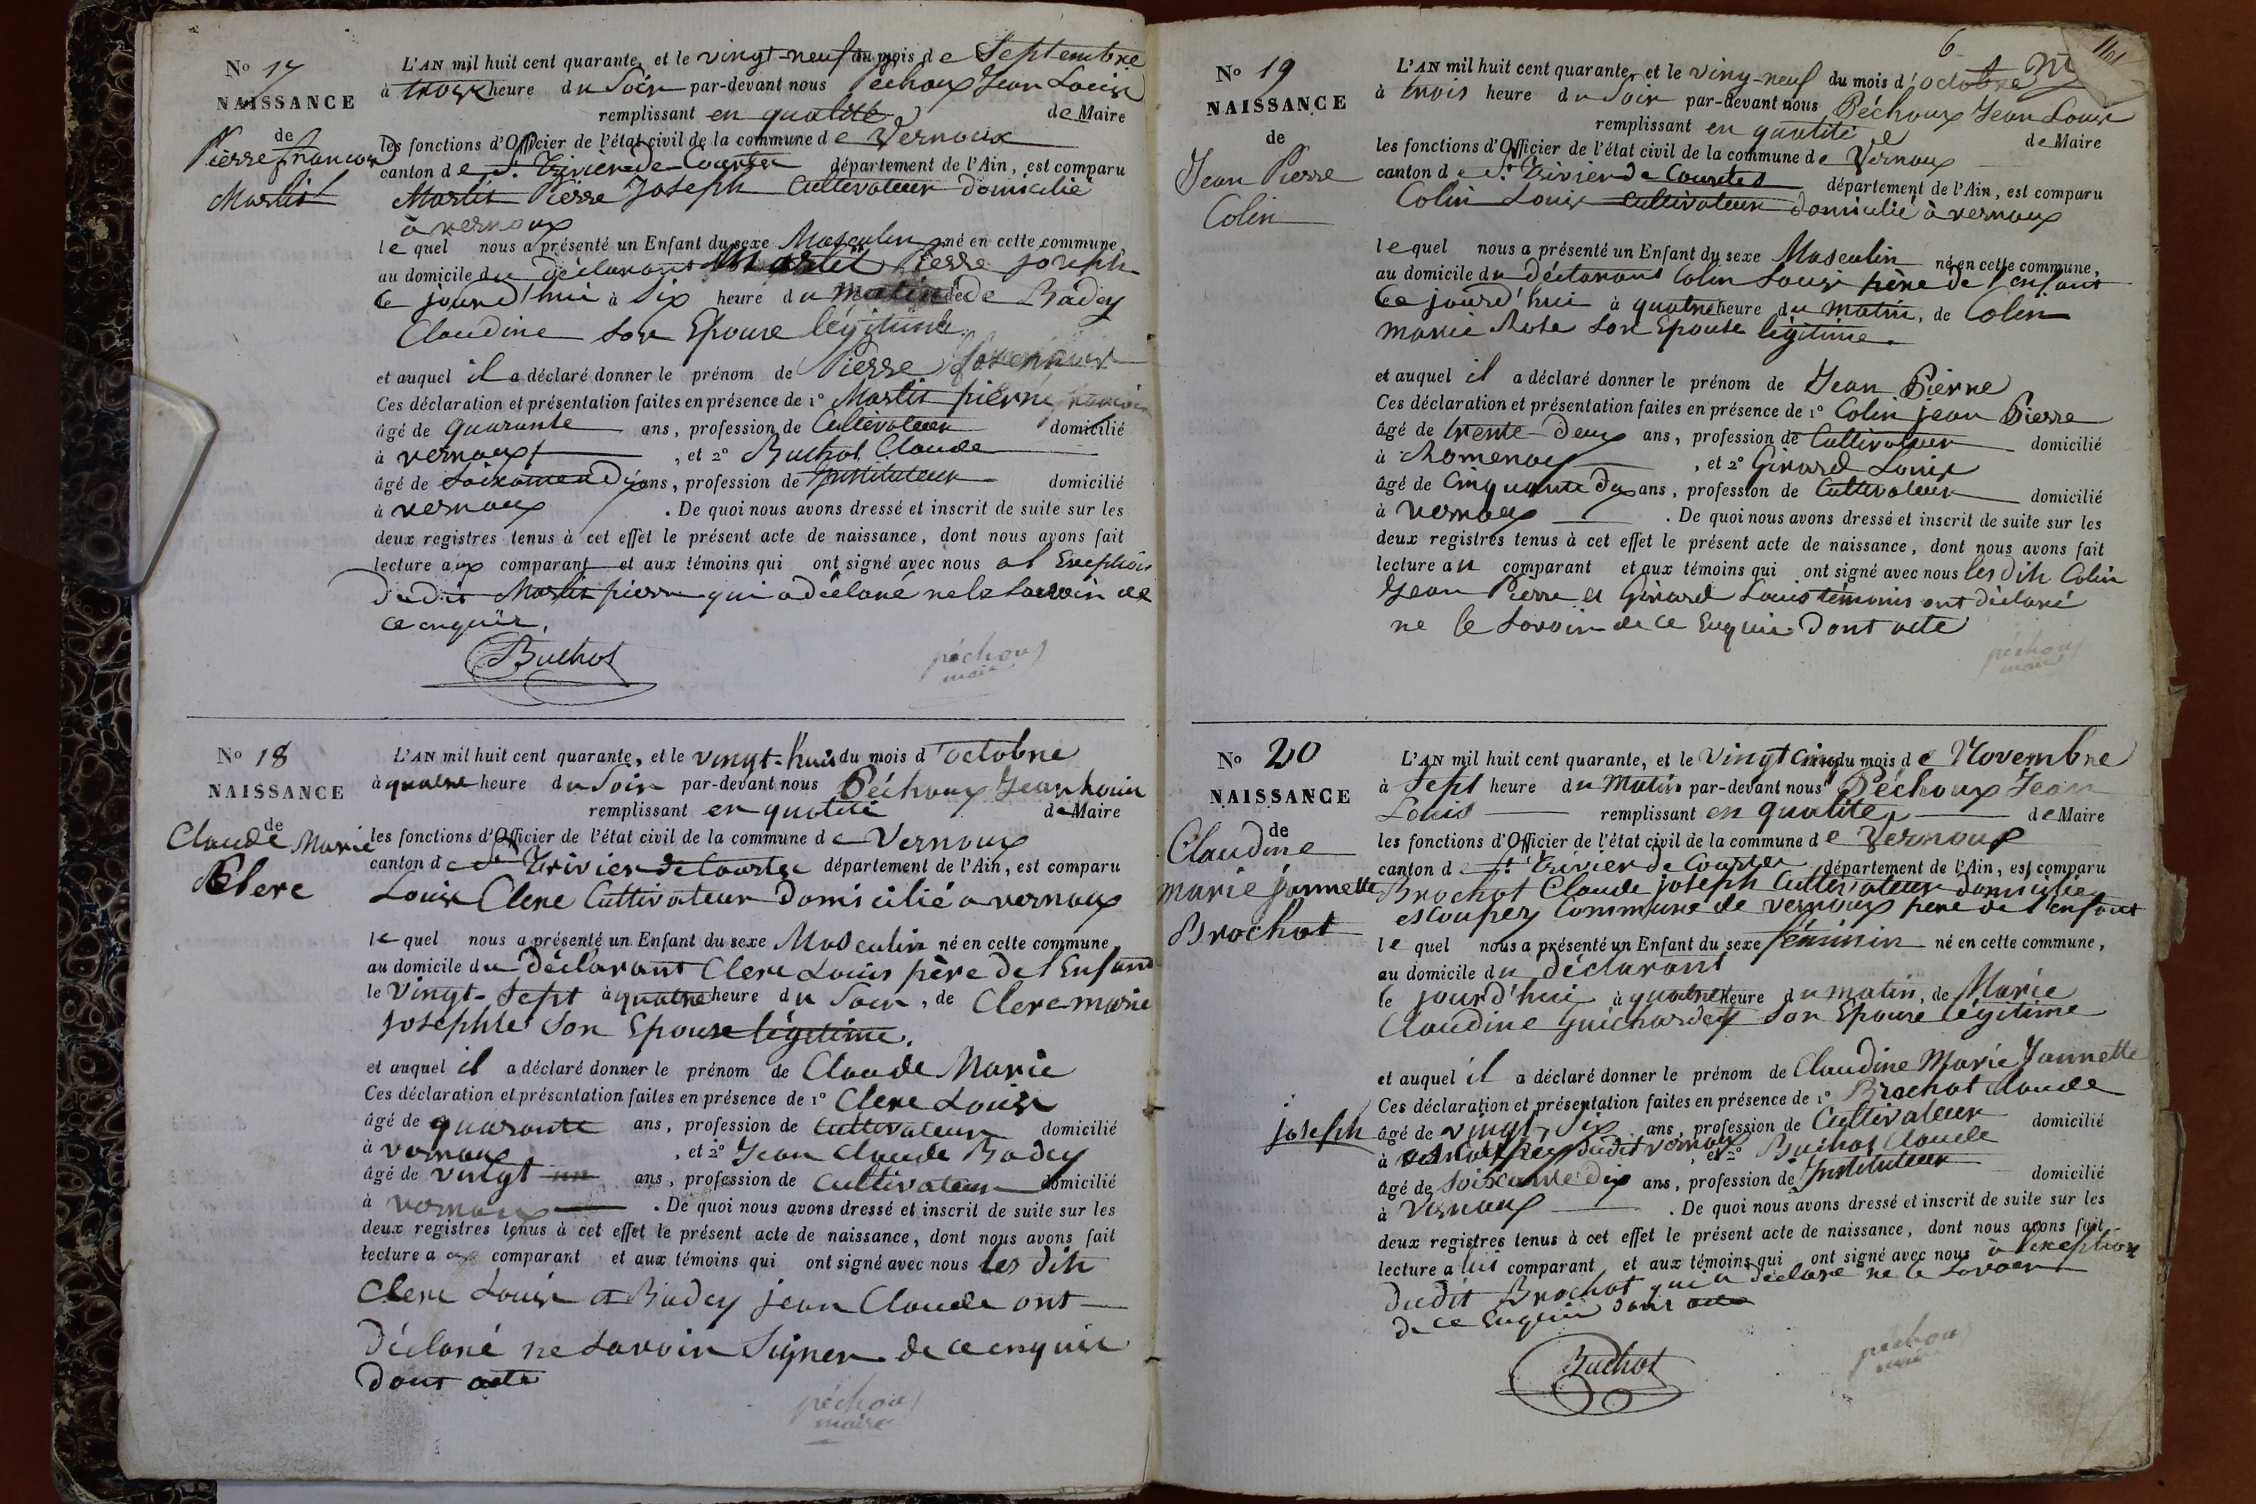 No 17
NAISSANCE
de
Pierre françois
Martit
L'AN mil huit cent quarante, et le vingt-neuf du mois de Septembre
à trois heure du Soir par-devant nous Péchoux Jean Louis
remplissant en qualité de Maire
les fonctions d'Officier de l'état civil de la commune de Vernoux
canton de St. Trivier de Courtes département de l'Ain, est comparu
Martit Pierre Joseph Cultivateur domicilié
à vernoux
lequel nous a présenté un Enfant du sexe Masculin né en cette commune,
au domicile du déclarant Martit Pierre joseph
Ce jourd'hui à Six heure du matin de Badey
Claudine Son Epouse légitime
et auquel il a déclaré donner le prénom de Pierre
Ces déclaration et présentation faites en présence de 1º Martit pierre
âgé de quarante ans, profession de Cultivateur domicilié
à vernoux, et 2º Buchot Claude
âgé de Soixante Dix ans, profession de Instituteur domicilié
à vernoux. De quoi nous avons dressé et inscrit de suite sur les
deux registres tenus à cet effet le présent acte de naissance, dont nous avons fait
lecture aux comparant et aux témoins qui ont signé avec nous a l Exception
dudit Martit pierre qui a déclaré ne le Savoir de
ce enquis.
Buchot
péchoux
maire
No 18
NAISSANCE
de
Claude Marie
Clerc
L'AN mil huit cent quarante, et le vingt-huit du mois d octobre
à quatre heure du Soir par-devant nous Péchoux Jean Louis
remplissant en qualité de Maire
les fonctions d'Officier de l'état civil de la commune de Vernoux
canton de St Trivier de Courtes département de l'Ain, est comparu
Louis Clerc Cultivateur Domicilié a vernoux
lequel nous a présenté un Enfant du sexe Masculin né en cette commune
au domicile du déclarant Clerc Louis père de l Enfant
le Vingt-Sept à quatre heure du Soir, de Clerc marie
Josephte Son Epouse légitime.
et auquel il a déclaré donner le prénom de Claude Marie
Ces déclaration et présentation faites en présence de 1º Clerc Louis
âgé de quarante ans, profession de Cultivateur domicilié
à vernoux, et 2º Jean Claude Badey
âgé de vingt un ans, profession de Cultivateur domicilié
à vernoux. De quoi nous avons dressé et inscrit de suite sur les
deux registres tenus à cet effet le présent acte de naissance, dont nous avons fait
lecture aux comparant et aux témoins qui ont signé avec nous les dits
Clerc Louis et Badey jean Claude ont
Déclaré ne Savoir Signer de ce enquis
dont acte
péchoux
maire
6
No 19
NAISSANCE
de
Jean Pierre
Colin
L'AN mil huit cent quarante, et le vingt-neuf du mois d'octobre
à trois heure du Soir par-devant nous Péchoux Jean Louis
remplissant en qualité de Maire
les fonctions d'Officier de l'état civil de la commune de Vernoux
canton de St. Trivier de Courtes département de l'Ain, est comparu
Colin Louis Cultivateur domicilié à vernoux
lequel nous a présenté un Enfant du sexe Masculin né en cette commune,
au domicile du déclarant Colin Louis père de l enfant
Ce jourd'hui à quatre heure du matin, de Colin
marie Rose Son Epouse légitime.
et auquel il a déclaré donner le prénom de Jean Pierre
Ces déclaration et présentation faites en présence de 1º Colin jean Pierre
âgé de trente-deux ans, profession de Cultivateur domicilié
à Romenay, et 2º Girard Louis
âgé de Cinquante Dix ans, profession de Cultivateur domicilié
à vernoux. De quoi nous avons dressé et inscrit de suite sur les
deux registres tenus à cet effet le présent acte de naissance, dont nous avons fait
lecture au comparant et aux témoins qui ont signé avec nous les dits Colin
Jean Pierre et Girard Louis témoins ont déclaré
ne le Savoir de ce Enquis Dont acte
péchoux
maire
No 20
NAISSANCE
de
Claudine
marie jannette
Brochot
L'AN mil huit cent quarante, et le Vingt cinq du mois de Novembre
à Sept heure du Matin par-devant nous Péchoux Jean
Louis remplissant en qualité de Maire
les fonctions d'Officier de l'état civil de la commune de Vernoux
canton de St. Trivier de Courtes, département de l'Ain, est comparu
Brochot Claude joseph Cultivateur domicilié
es Commune de vernoux père de l enfant
lequel nous a présenté un Enfant du sexe féminin né en cette commune,
au domicile du déclarant
le jourd'hui à quatre heure du matin, de Marie
Claudine Guichardey Son Epouse légitime
et auquel il a déclaré donner le prénom de Claudine Marie Jannette
Ces déclaration et présentation faites en présence de 1º Brochot Claude
joseph âgé de vingt-Six ans, profession de Cultivateur domicilié
à dudit vernoux et 2º Buchot Claude
âgé de Soixante Dix ans, profession de Instituteur domicilié
à Vernoux. De quoi nous avons dressé et inscrit de suite sur les
deux registres tenus à cet effet le présent acte de naissance, dont nous avons fait
lecture a lui comparant et aux témoins qui ont signé avec nous à l'exception
dudit Brochot qui a déclaré ne le Savoir
de ce Enquis dont acte
Buchot
péchoux
maire